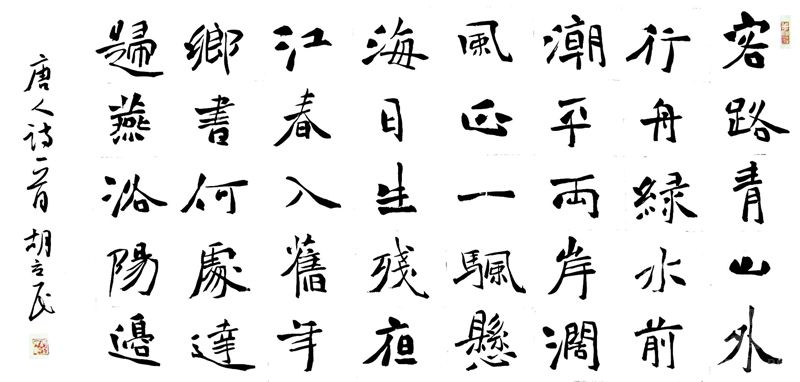 客路青山外
行舟緑水前
潮平両岸濶
風正一颿懸
海日生殘夜
江春入舊年
鄉書何處達
歸燕洛陽邊
唐人詩一首 胡立民